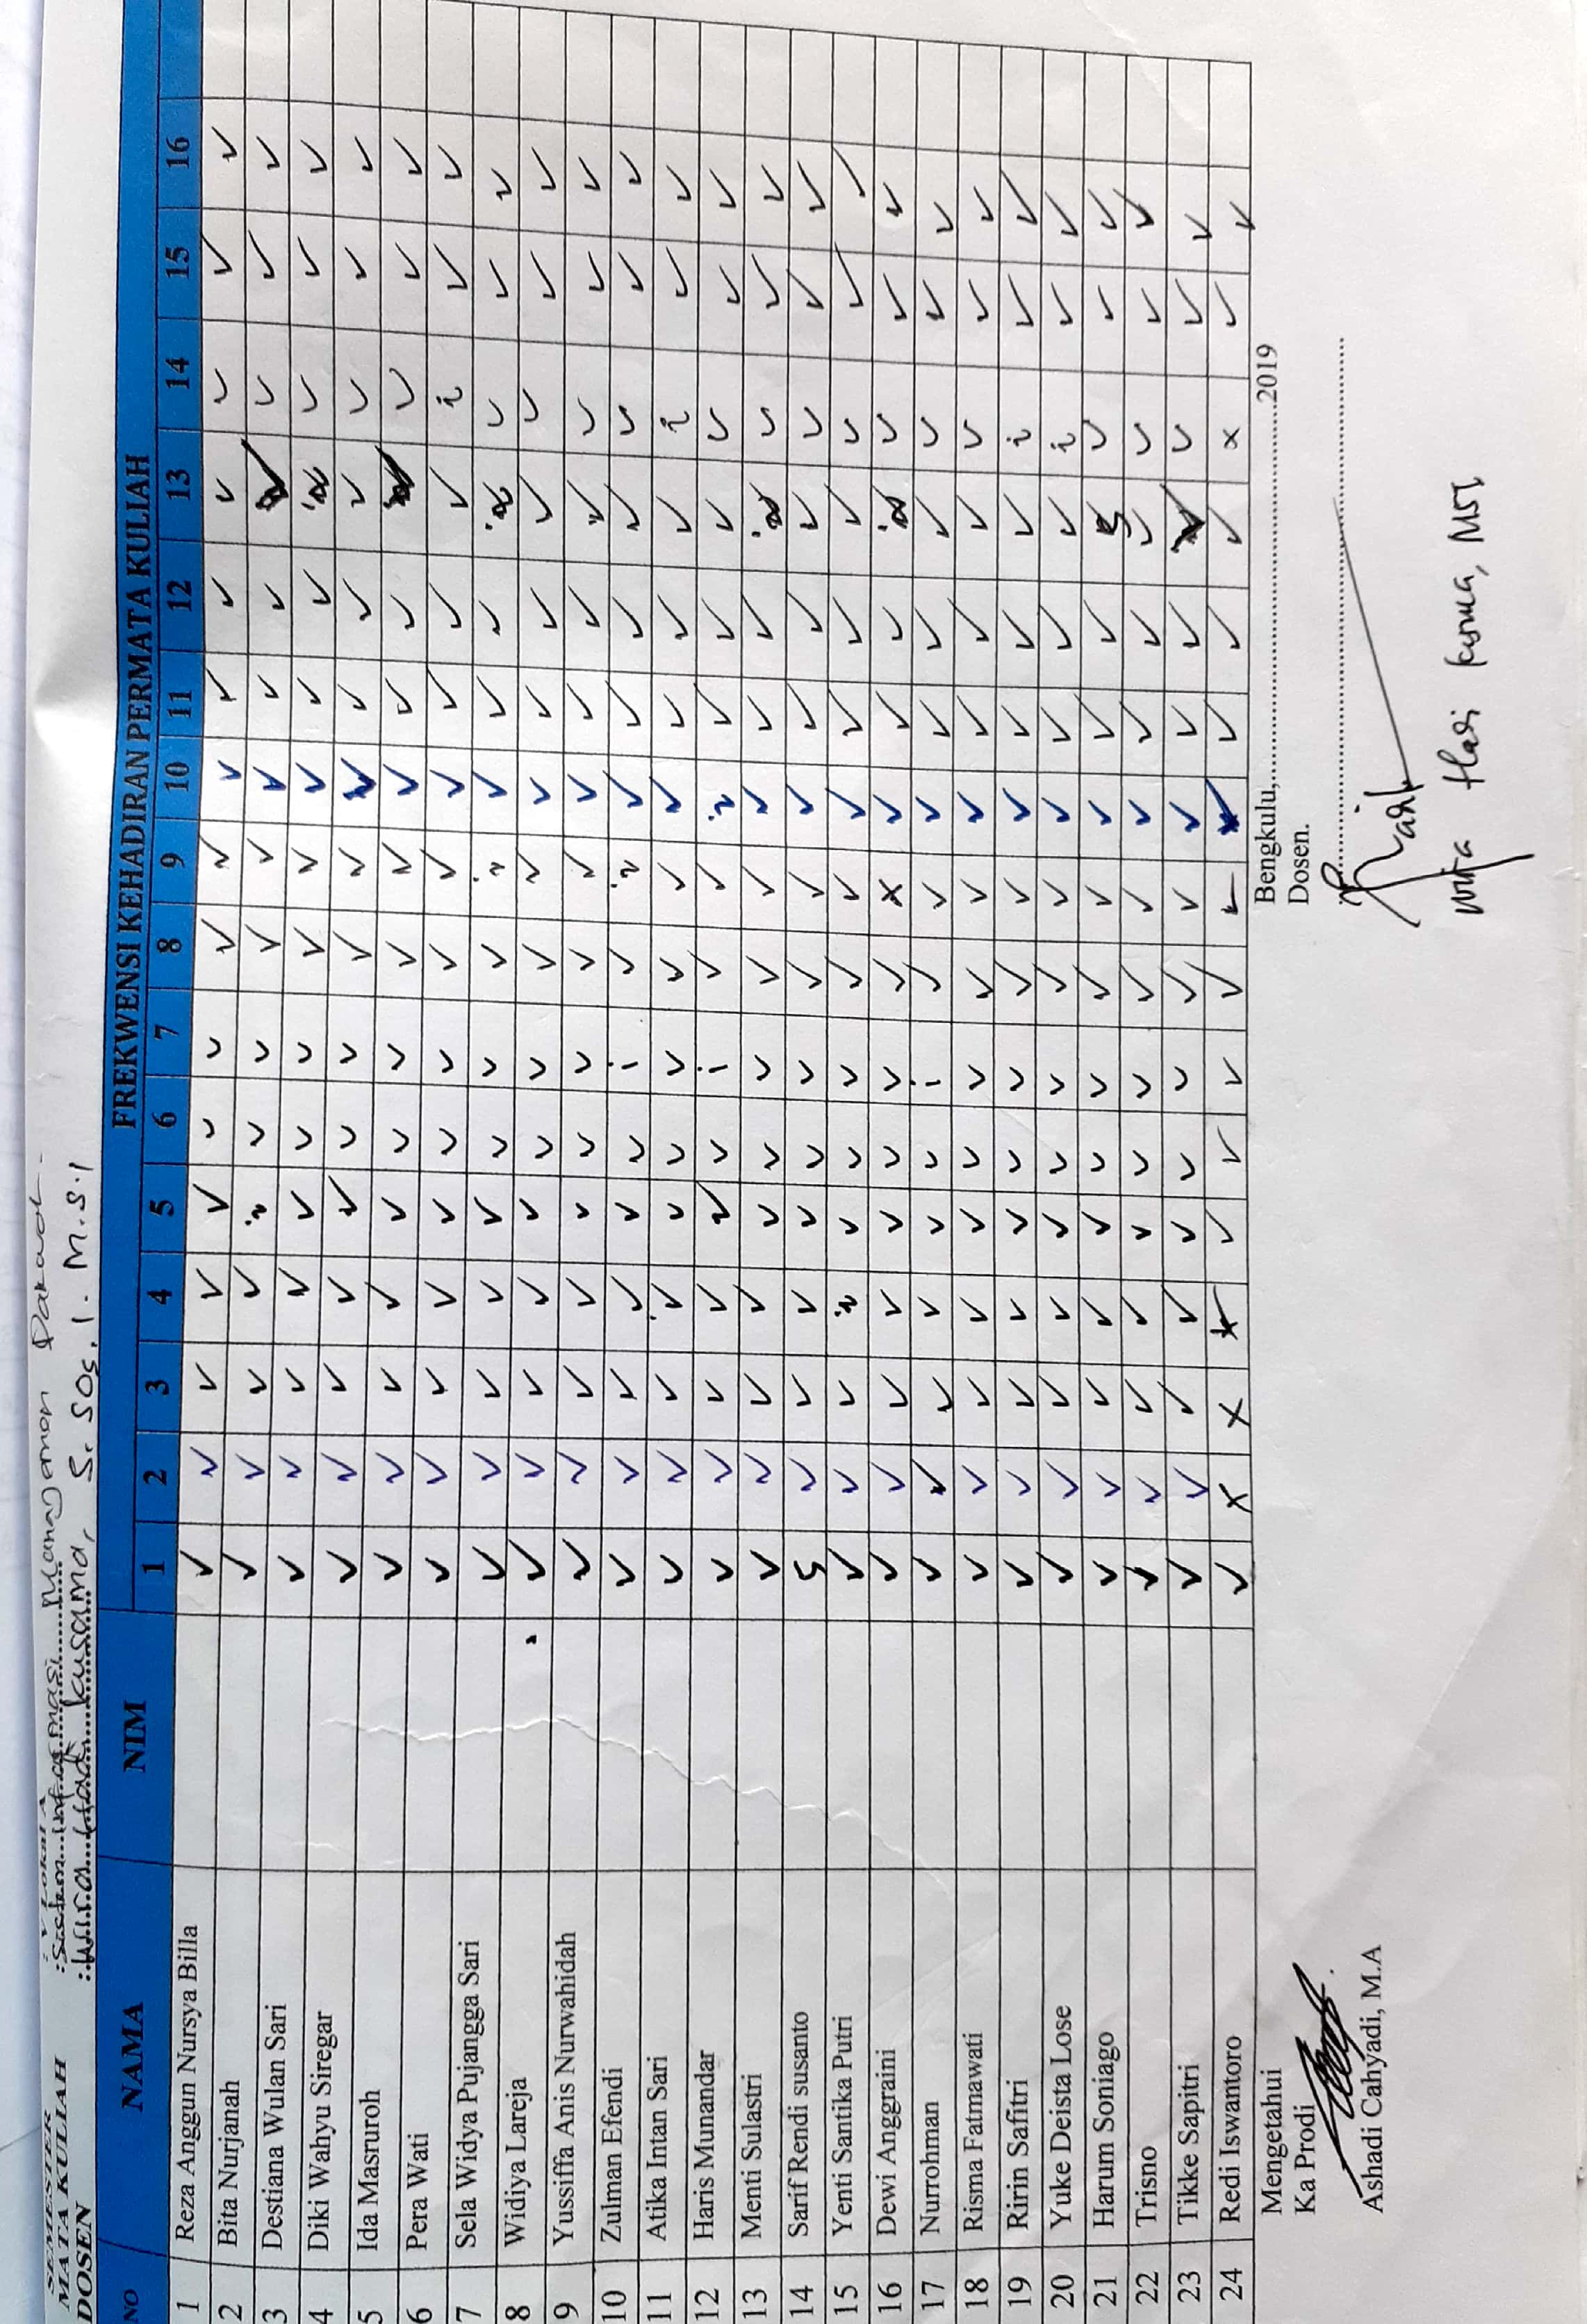 SEMESTER : V Lokal A
MATA KULIAH : Sistem informasi Manajemen Dakwah
DOSEN : Wira Hadi kusuma, S. Sos. I. M.S.I
NO NAMA NIM FREKWENSI KEHADIRAN PERMATA KULIAH
1 2 3 4 5 6 7 8 9 10 11 12 13 14 15 16
1 Reza Anggun Nursya Billa
2 Bita Nurjanah
3 Destiana Wulan Sari
4 Diki Wahyu Siregar
5 Ida Masruroh
6 Pera Wati
7 Sela Widya Pujangga Sari
8 Widiya Lareja
9 Yussiffa Anis Nurwahidah
10 Zulman Efendi
11 Atika Intan Sari
12 Haris Munandar
13 Menti Sulastri
14 Sarif Rendi susanto
15 Yenti Santika Putri
16 Dewi Anggraini
17 Nurrohman
18 Risma Fatmawati
19 Ririn Safitri
20 Yuke Deista Lose
21 Harum Soniago
22 Trisno
23 Tikke Sapitri
24 Redi Iswantoro
Mengetahui
Ka Prodi
Ashadi Cahyadi, M.A
Bengkulu,..............................2019
Dosen.
Wira Hadi kusuma, MSI